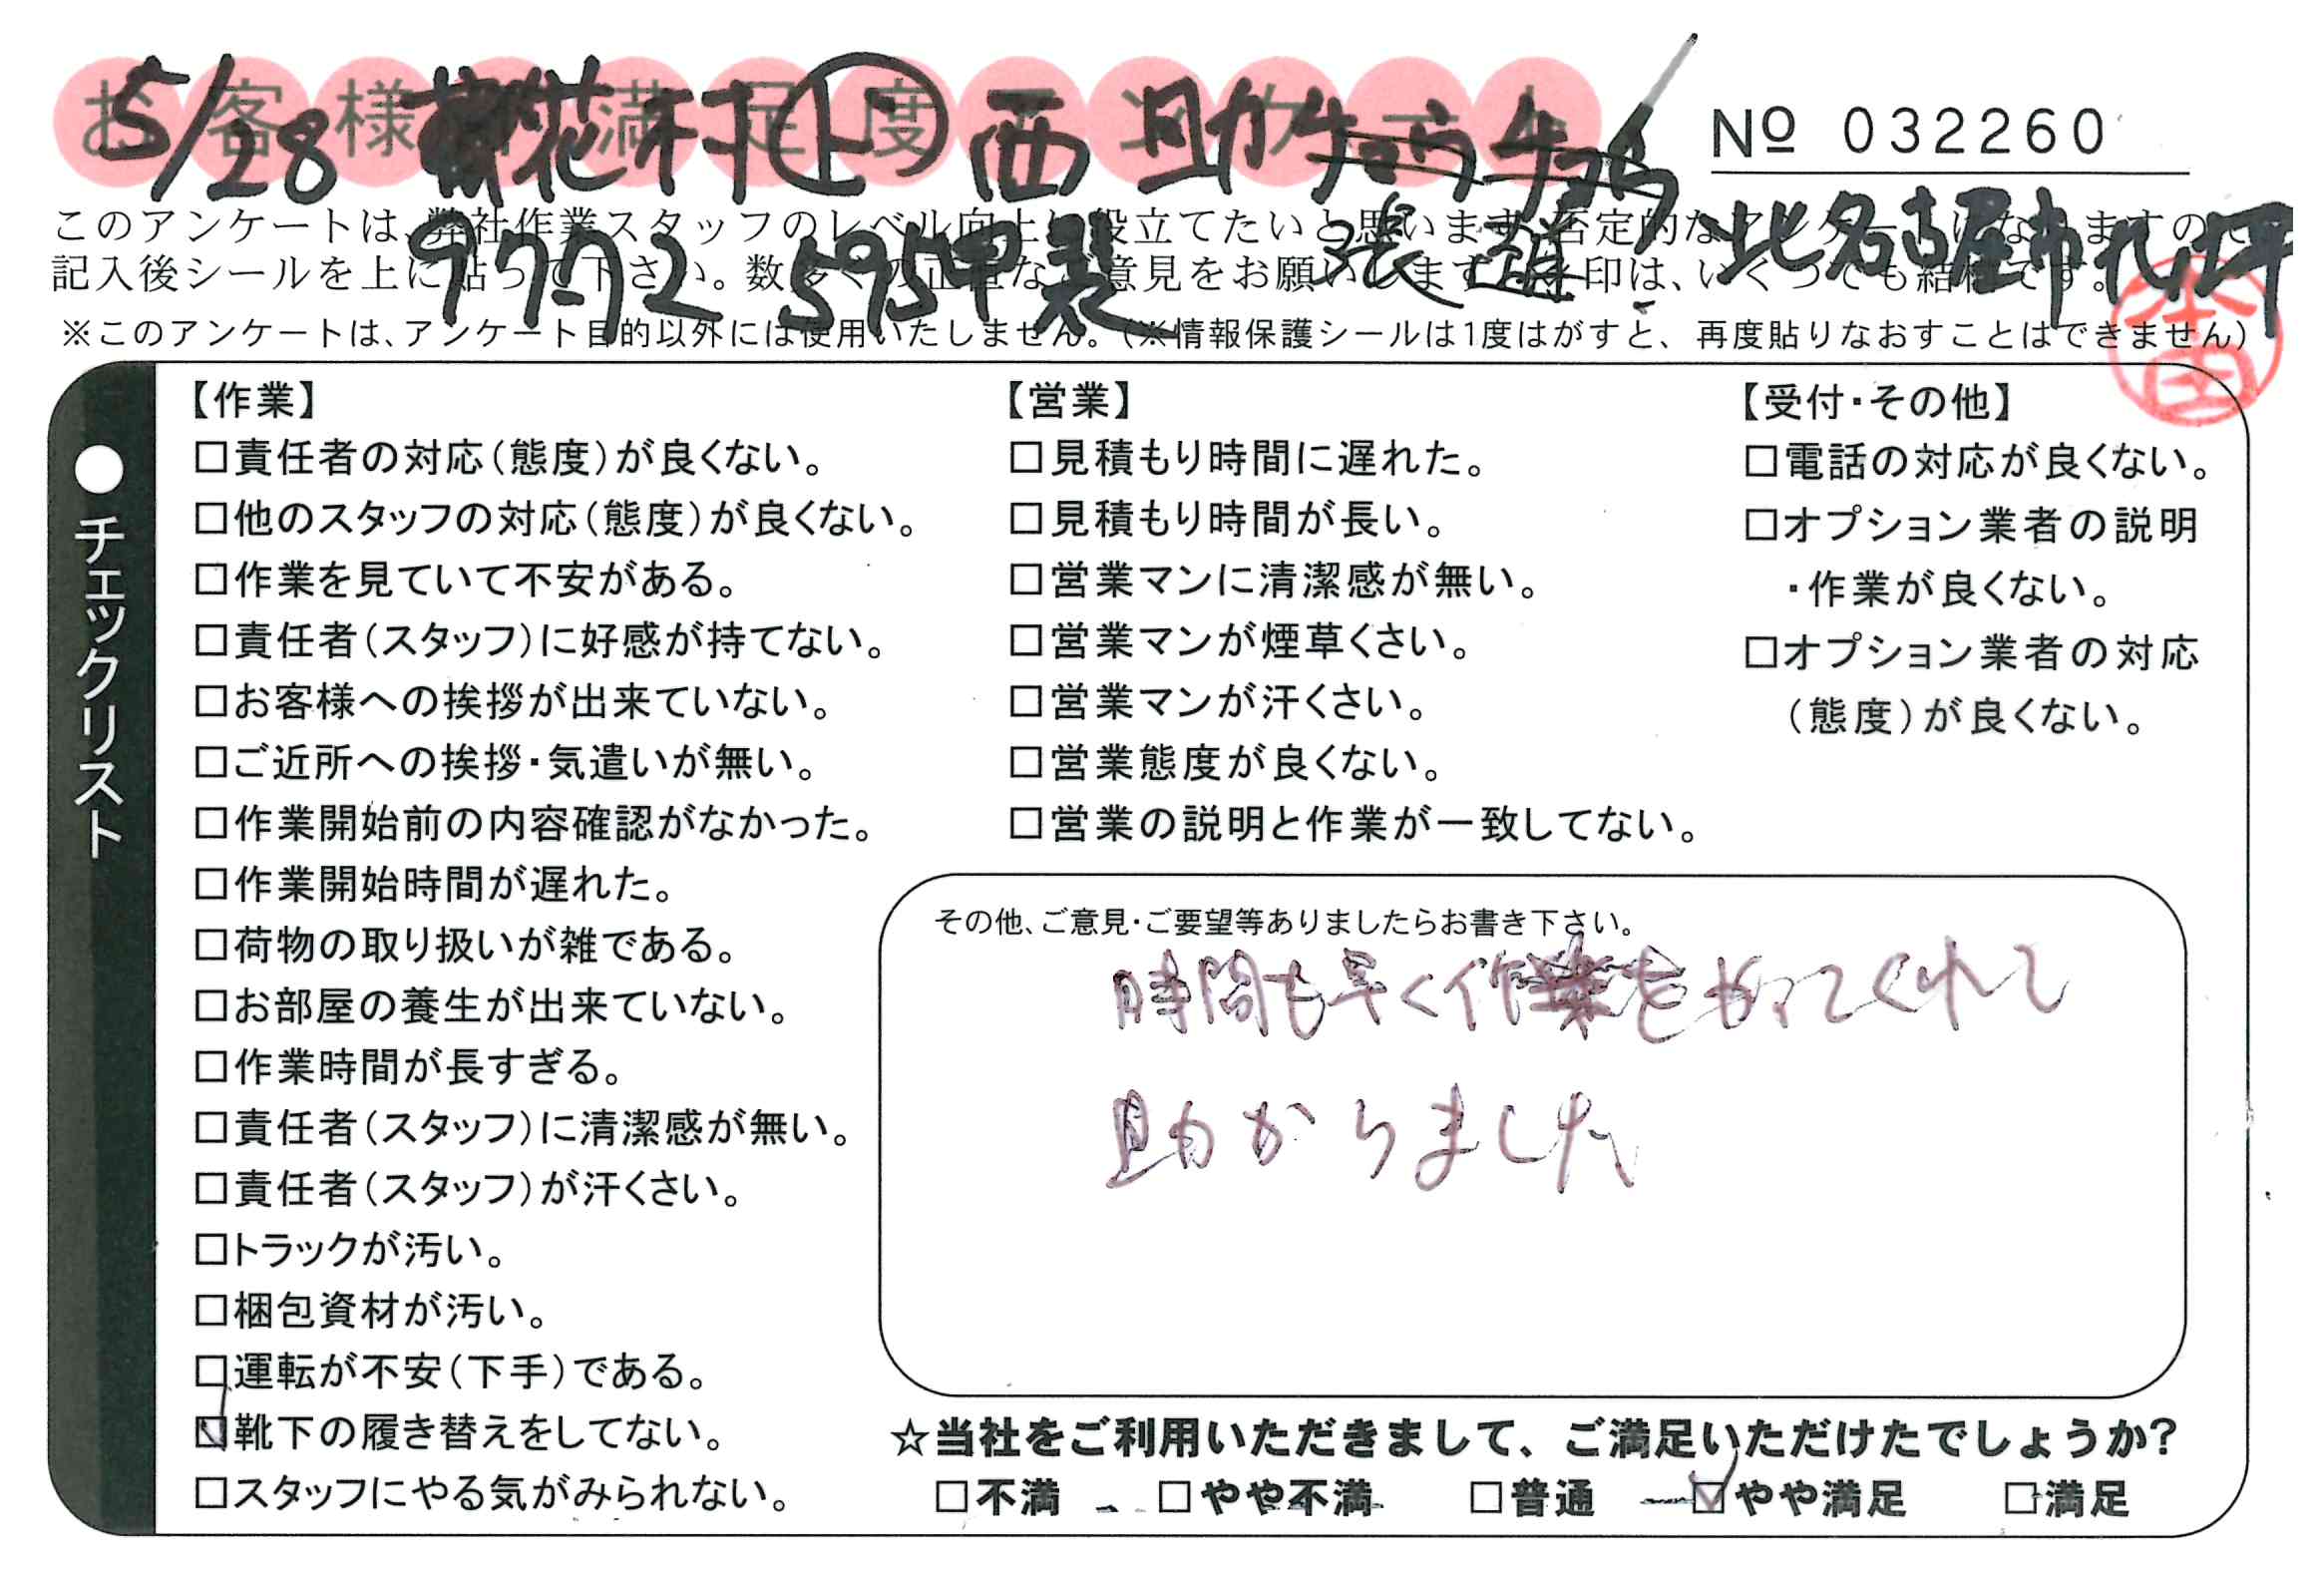 お客様満足度アンケート
5/28 花村 上 西 助
Nº 032260
9772 595甲製 北名古屋市
このアンケートは、弊社作業スタッフのレベル向上に役立てたいと思います。否定的なアンケートになりますので
記入後シールを上に貼って下さい。数多くの正直なご意見をお願いします。レ印は、いくつでも結構です。
※このアンケートは、アンケート目的以外には使用いたしません。(※情報保護シールは1度はがすと、再度貼りなおすことはできません)
本田
●チェックリスト
【作業】
□責任者の対応(態度)が良くない。
□他のスタッフの対応(態度)が良くない。
□作業を見ていて不安がある。
□責任者(スタッフ)に好感が持てない。
□お客様への挨拶が出来ていない。
□ご近所への挨拶・気遣いが無い。
□作業開始前の内容確認がなかった。
□作業開始時間が遅れた。
□荷物の取り扱いが雑である。
□お部屋の養生が出来ていない。
□作業時間が長すぎる。
□責任者(スタッフ)に清潔感が無い。
□責任者(スタッフ)が汗くさい。
□トラックが汚い。
□梱包資材が汚い。
□運転が不安(下手)である。
☑靴下の履き替えをしてない。
□スタッフにやる気がみられない。
【営業】
□見積もり時間に遅れた。
□見積もり時間が長い。
□営業マンに清潔感が無い。
□営業マンが煙草くさい。
□営業マンが汗くさい。
□営業態度が良くない。
□営業の説明と作業が一致してない。
【受付・その他】
□電話の対応が良くない。
□オプション業者の説明
・作業が良くない。
□オプション業者の対応
(態度)が良くない。
その他、ご意見・ご要望等ありましたらお書き下さい。
時間も早く作業をやってくれて
助かりました
☆当社をご利用いただきまして、ご満足いただけたでしょうか?
□不満 □やや不満 □普通 ☑やや満足 □満足